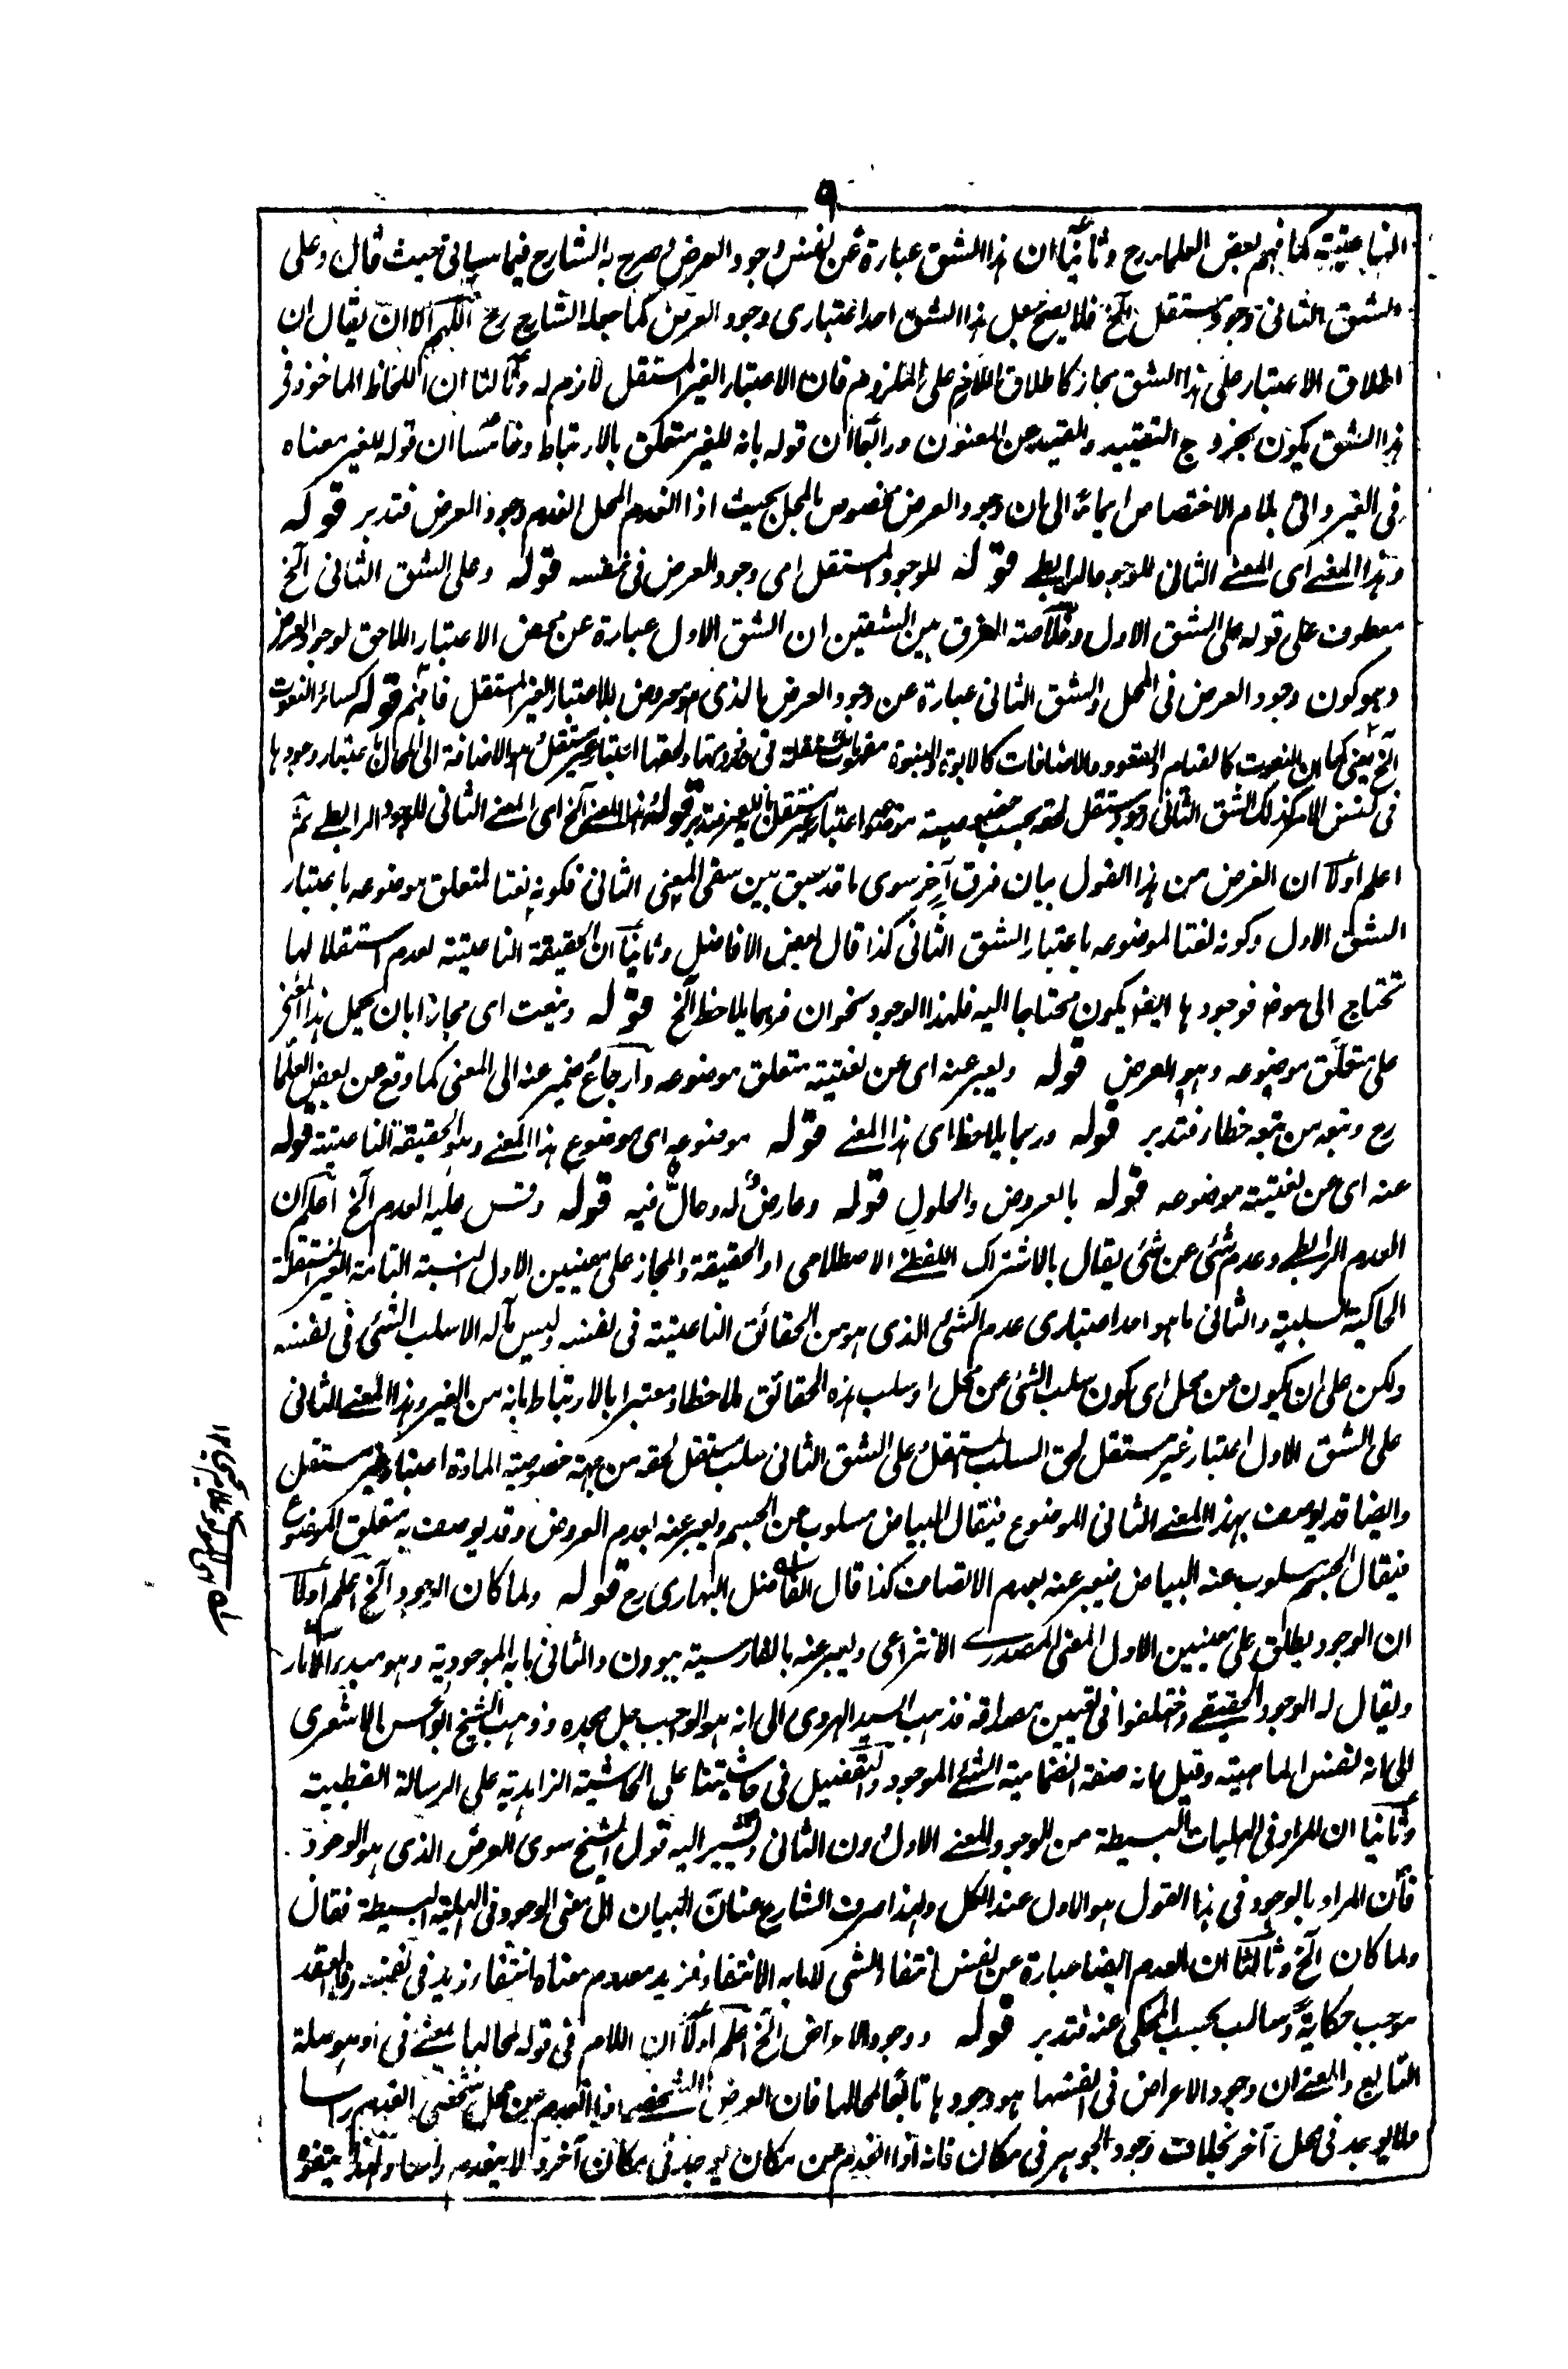 ٩
الناعتية كما فهم بعض العلماء رح وثانيا ان هذا الشق عبارة عن نفس وجود العرض صرح به الشارح فيما سياتي حيث قال وعلى
الشق الثاني وجود مستقل الخ فلا يصح جعل هذا الشق احد اعتباري وجود العرض كما جعله الشارح رح اللهم الا ان يقال ان
اطلاق الاعتبار على هذا الشق مجاز كاطلاق اللازم على الملزوم فان الاعتبار الغير المستقل لازم له وثالثا ان اللحاظ الماخوذ في
هذا الشق يكون بخروج التقييد والقيد عن المعنون ورابعا ان قوله بانه للغير متعلق بالارتباط وخامسا ان قوله للغير معناه
في الغير واتى بلام الاختصاص ايماء الى ان وجود العرض مخصوص بالمحل بحيث اذا انعدم المحل انعدم وجود العرض فتدبر قوله
وهذا المعنى اى المعنى الثاني للوجود الرابطي قوله للوجود المستقل اى وجود العرض في نفسه قوله وعلى الشق الثاني الخ
معطوف على قوله على الشق الاول وخلاصة الفرق بين الشقين ان الشق الاول عبارة عن محض الاعتبار اللاحق لوجود العرض
وهو كون وجود العرض في المحل والشق الثاني عبارة عن وجود العرض الذي هو معروض للاعتبار الغير المستقل فافهم قوله كسائر النعوت
الخ يعني كما ان النعوت كالقيام والقعود والاضافات كالابوة والبنوة مفهومات مستقلة في حد ذاتها ولحقها اعتبار غير مستقل هو الاضافة الى المحال باعتبار وجودها
في نفس الامر كذلك الشق الثاني وجود مستقل لحقه بحسب خصوصية موضوعه اعتبار غير مستقل بانه للغير فتدبر قوله وهذا المعنى الخ اى المعنى الثاني للوجود الرابطي ثم
اعلم اولا ان الغرض من هذا القول بيان فرق آخر سوى ما قد سبق بين شقى المعنى الثاني فكونه نعتا لمتعلق موضوعه باعتبار
الشق الاول وكونه نعتا لموضوعه باعتبار الشق الثاني كذا قال بعض الافاضل وثانيا ان الحقيقة الناعتية لعدم استقلالها
تحتاج الى موضع فوجودها ايضا يكون محتاجا اليه فلهذا الوجود نحوان فربما يلاحظ الخ قوله وينعت اى مجازا بان يحمل هذا المعنى
على متعلق موضوعه وهو العرض قوله ويعبر عنه اى عن نعتية متعلق موضوعه وارجاع ضمير عنه الى المعنى كما وقع عن بعض العلما
رح وتبعه من تبعه خطاء فتدبر قوله وربما يلاحظ اى هذا المعنى قوله موضوعه اى موضوع هذا المعنى وهو الحقيقة الناعتية قوله
عنه اى عن نعتية موضوعه قوله بالعروض والحلول قوله وعارض له وحال فيه قوله وقس عليه العدم الخ اعلم ان
العدم الرابطي وعدم شئ عن شئ يقال بالاشتراك اللفظي الاصطلاحي او الحقيقة والمجاز على معنيين الاول النسبة التامة الغير المستقلة
الحاكية السلبية والثاني ما هو احد اعتباري عدم الشئ الذي هو من الحقائق الناعتية في نفسه وليس مآله الا سلب الشئ في نفسه
ولكن على ان يكون عن محل اى كون سلب الشئ عن محل او سلب هذه الحقائق ملاحظا ومعتبرا بالارتباط بانه من الغير وهذا المعنى الثاني
على الشق الاول اعتبار غير مستقل لحق السلب المستقل وعلى الشق الثاني سلب مستقل لحقه من جهة خصوصية المادة اعتبار غير مستقل
وايضا قد يوصف بهذا المعنى الثاني الموضوع فيقال البياض مسلوب عن الجسم ويعبر عنه بعدم العروض وقد يوصف به متعلق الموضوع
فيقال الجسم مسلوب عنه البياض فيعبر عنه بعدم الاتصاف كذا قال الفاضل البهاري رح قوله ولما كان الوجود الخ اعلم اولا
ان الوجود يطلق على معنيين الاول المعنى المصدري الانتزاعي ويعبر عنه بالفارسية ببودن والثاني ما به الموجودية وهو مبدء الآثار
ويقال له الوجود الحقيقي واختلفوا في تعيين مصداقه فذهب السيد الهروى الى انه هو الواجب جل مجده وذهب الشيخ ابو الحسن الاشعرى
الى انه نفس الماهية وقيل انه صفة انضمامية الشئ الموجود والتفصيل في حاشيتنا على الحاشية الزاهدية على الرسالة القطبية
وثانيا ان المراد في الهليات البسيطة من الوجود المعنى الاول دون الثاني ويشير اليه قول الشيخ سوى العرض الذي هو الوجود
فان المراد بالوجود في هذا القول هو الاول عند الكل ولهذا صرف الشارح عنان البيان الى معنى الوجود في الهلية البسيطة فقال
ولما كان الخ وثالثا ان العدم ايضا عبارة عن نفس انتفاء الشى لا ما به الانتفاء فزيد معدوم معناه انتفاء زيد في نفسه فالعقد
موجب حكاية وسالب بحسب المحكى عنه فتدبر قوله ووجود الاعراض الخ اعلم اولا ان اللام في قوله لمحالها بمعنى في او هو صلة
التابع والمعنى ان وجود الاعراض في انفسها هو وجودها تابعا لمحالها فان العرض الشخصي اذا انعدم عن محل شخصي انعدم راسا
ولا يوجد في محل آخر بخلاف وجود الجوهر في مكان فانه اذا انعدم عن مكان يوجد في مكان آخر ولا ينعدم راسا ولهذا يتفوه